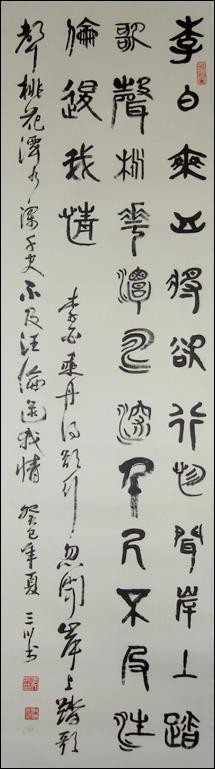 李白乘舟將欲行忽聞岸上踏
歌聲桃花潭水深千尺不及汪
倫送我情
李白乘舟将欲行忽闻岸上踏歌
聲桃花潭水深千尺不及汪倫送我情
癸巳年夏